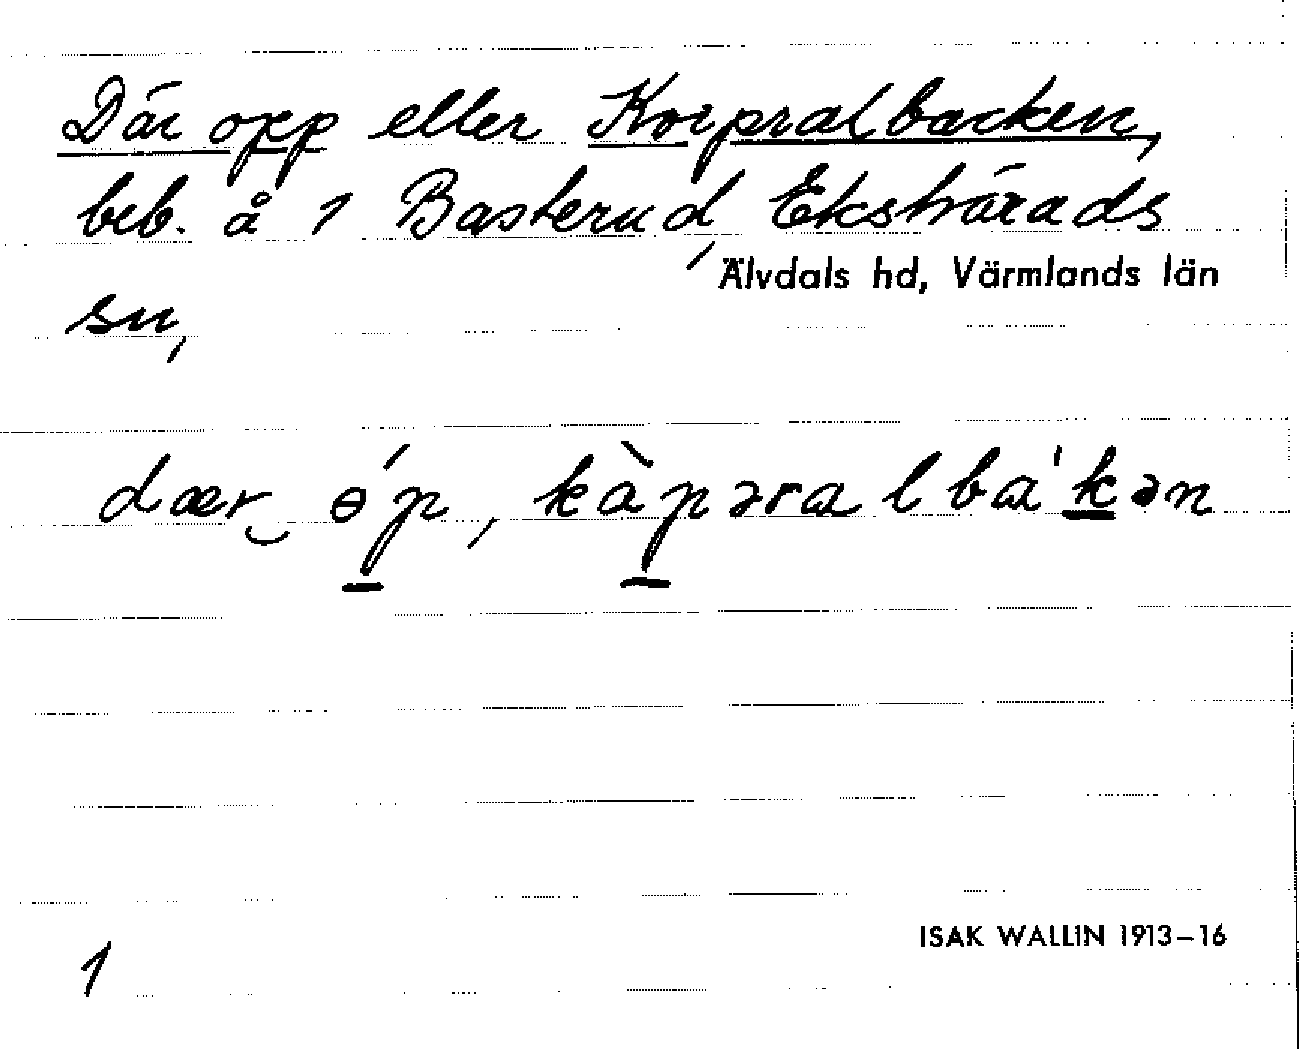 Där opp eller Korpralbacken,
beb. å 1 Basterud, Ekshärads
Älvdals hd, Värmlands län
sn,
dær ɵ́p, kàpəralba'kən
ISAK WALLIN 1913–16
1